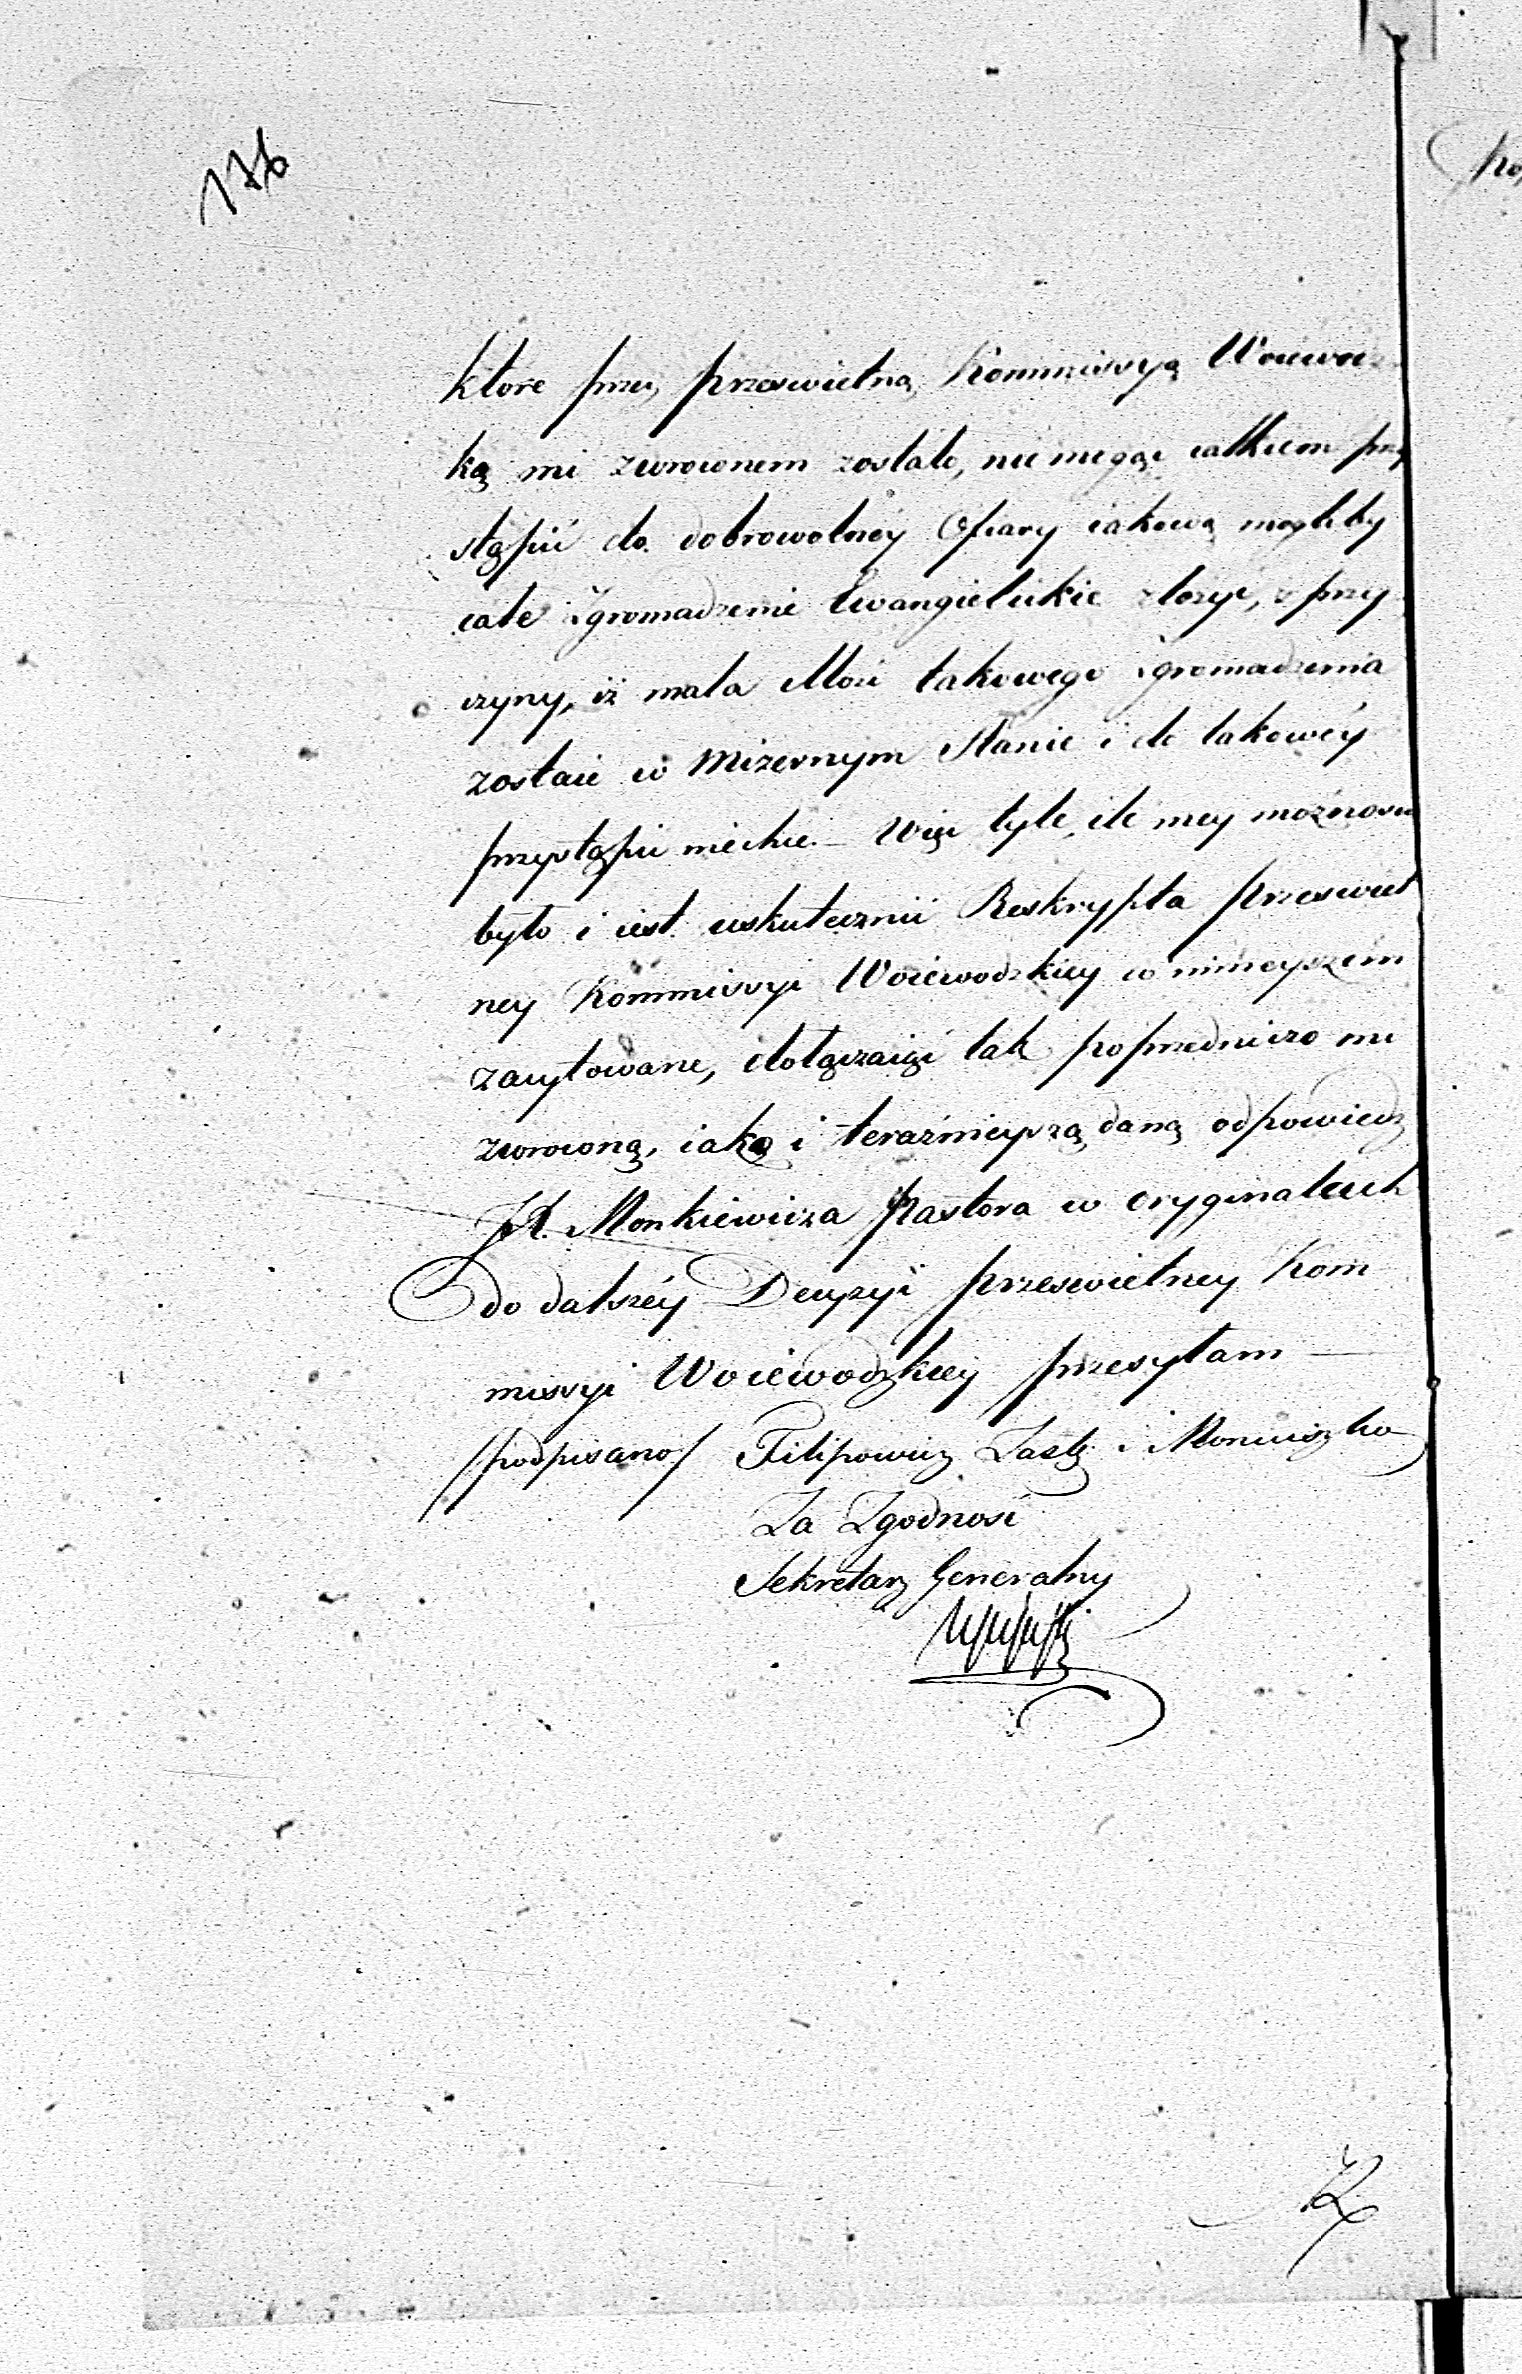 176
ktore przez przeswietną Kommissyą Woiewodz
ką mi zwroconem zostało, nie mogąc całkiem przy
stąpić do dobrowolnéy Ofiary iakową mogłoby
całe zgromadzenie Ewangielickie złożyc, z przy
czyny, iż mała Ilość takowego zgromadzenia
zostaie w Mizernym Stanie i do takowéy
przystąpić niechce. – Więc tyle ile mey możnosci
było i iest uskutecznić Reskrypta przeswiet
ney Kommissyi Woiewodzkiey w ninieyszém
zacytowane, dołączaiąc tak poprzedniczo mi
zwroconą, iako i teraźnieyszą daną odpowiedz
JX. Monkiewicza Pastora w oryginałach
do dalszéy Decyzyi przeswietney Kom
missyi Woiewodzkiéy przesyłam –
/podpisano/ Filipowicz Zastę: i Moniuszko
Za Zgodnosć
Sekretarz Generalny